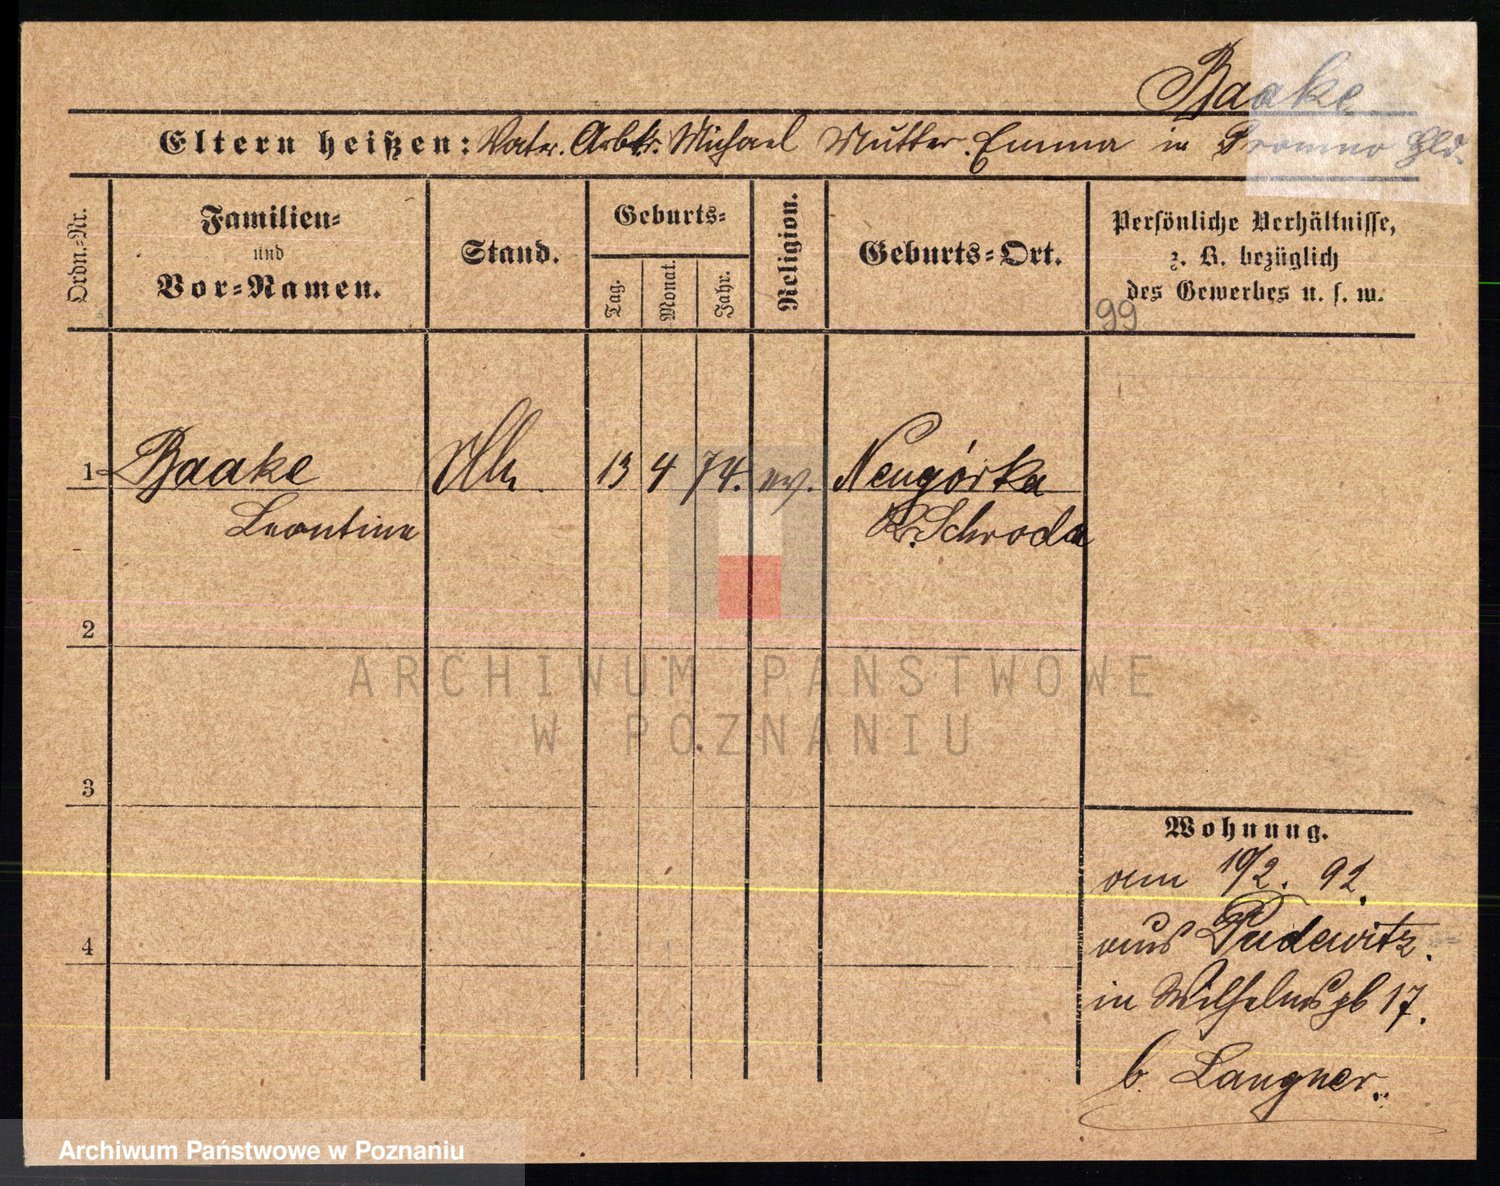 Baake
Eltern heißen: Vater. Arbtr. Michael Mutter. Emma in Promno Hld.
Ordn.=Nr.
Familien=
und
Vor=Namen.
Stand.
Geburts=
Tag.
Monat.
Jahr.
Religion.
Geburts=Ort.
Persönliche Verhältnisse,
z. B. bezüglich
des Gewerbes u. s. w.
99
1 Baake 13 4 74. ev. Neugórka
Leontine K. Schroda
2
ARCHIWUM PAŃSTWOWE
W POZNANIU
3
Wohnung.
am 10/2. 92.
4
aus Pudewitz.
in Wilhelmspl 17.
b. Langner.
Archiwum Państwowe w Poznaniu